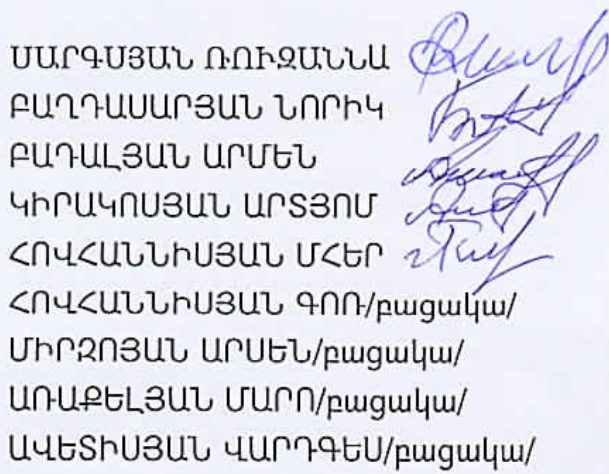 ՍԱՐԳՍՅԱՆ ՌՈՒԶԱՆՆԱ
ԲԱՂԴԱՍԱՐՅԱՆ ՆՈՐԻԿ
ԲԱԴԱԼՅԱՆ ԱՐՄԵՆ
ԿԻՐԱԿՈՍՅԱՆ ԱՐՏՅՈՄ
ՀՈՎՀԱՆՆԻՍՅԱՆ ՄՀԵՐ
ՀՈՎՀԱՆՆԻՍՅԱՆ ԳՈՌ/բացակա/
ՄԻՐԶՈՅԱՆ ԱՐՍԵՆ/բացակա/
ԱՌԱՔԵԼՅԱՆ ՄԱՐՈ/բացակա/
ԱՎԵՏԻՍՅԱՆ ՎԱՐԴԳԵՍ/բացակա/